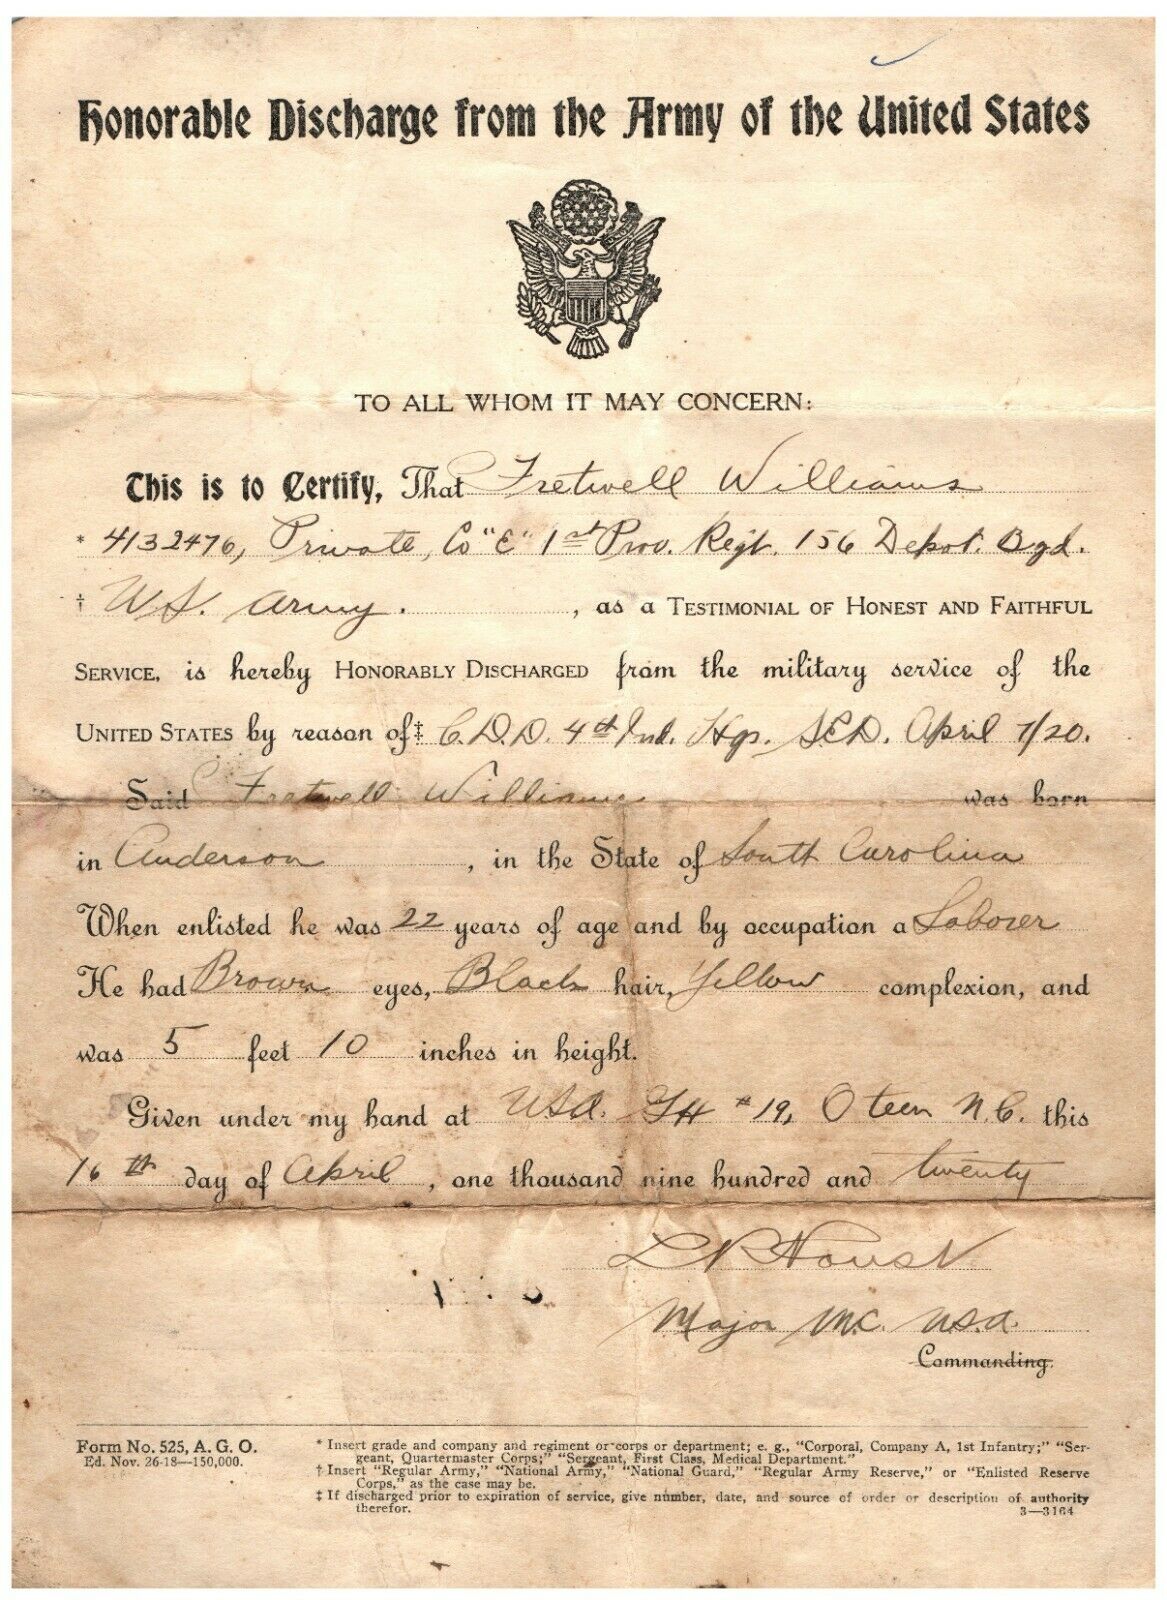 Honorable Discharge from the Army of the United States
TO ALL WHOM IT MAY CONCERN:
This is to Certify, That Fretwell Williams
* 4132476, Private, Co "E" 1st Prov. Regt. 156 Depot. Bgd.
† US. Army. , as a TESTIMONIAL OF HONEST AND FAITHFUL
SERVICE, is hereby HONORABLY DISCHARGED from the military service of the
UNITED STATES by reason of‡ C.D.D. 4th Ind. Hqs. S.E.D. April 7/20.
Said Fretwell Williams was born
in Anderson , in the State of South Carolina
When enlisted he was 22 years of age and by occupation a Laborer
He had Brown eyes, Black hair, Yellow complexion, and
was 5 feet 10 inches in height.
Given under my hand at USA. GH #19, Oteen N.C. this
16th day of April , one thousand nine hundred and twenty
Major M.C. U.S.A.
Commanding.
Form No. 525, A. G. O.
Ed. Nov. 26-18—150,000.
* Insert grade and company and regiment or corps or department; e. g., "Corporal, Company A, 1st Infantry;" "Ser-
geant, Quartermaster Corps;" "Sergeant, First Class, Medical Department."
† Insert "Regular Army," "National Army," "National Guard," "Regular Army Reserve," or "Enlisted Reserve
Corps," as the case may be.
‡ If discharged prior to expiration of service, give number, date, and source of order or description of authority
therefor.
3—3164